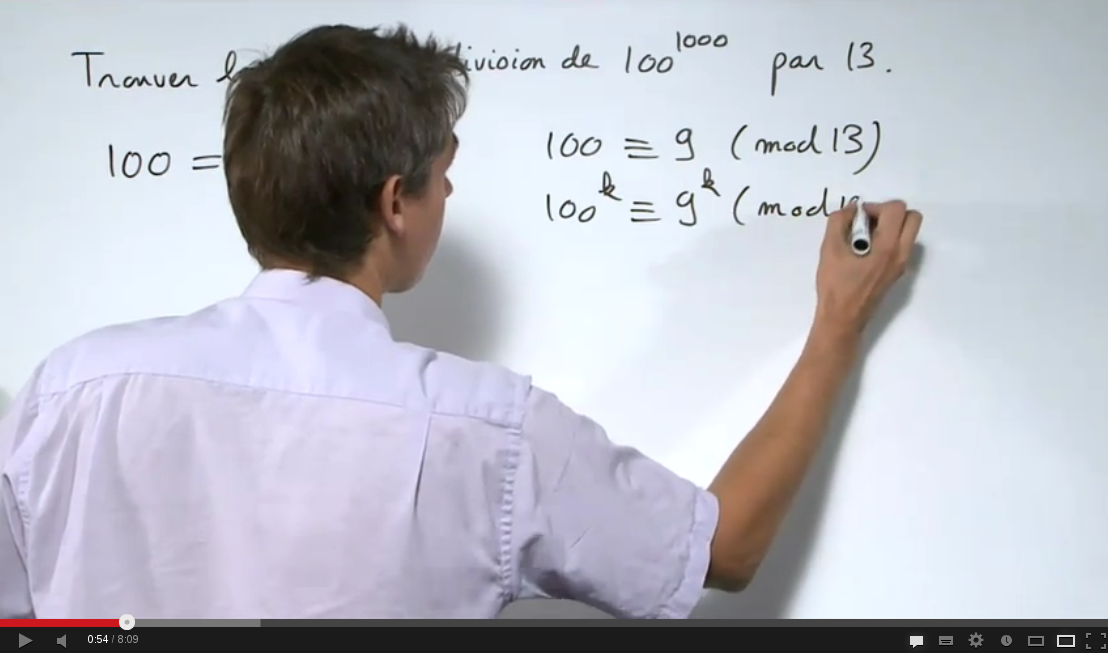 Trouver l ivision de 100^1000 par 13.
100 =
100 ≡ 9 (mod 13)
100^k ≡ 9^k (mod 1
0:54 / 8:09